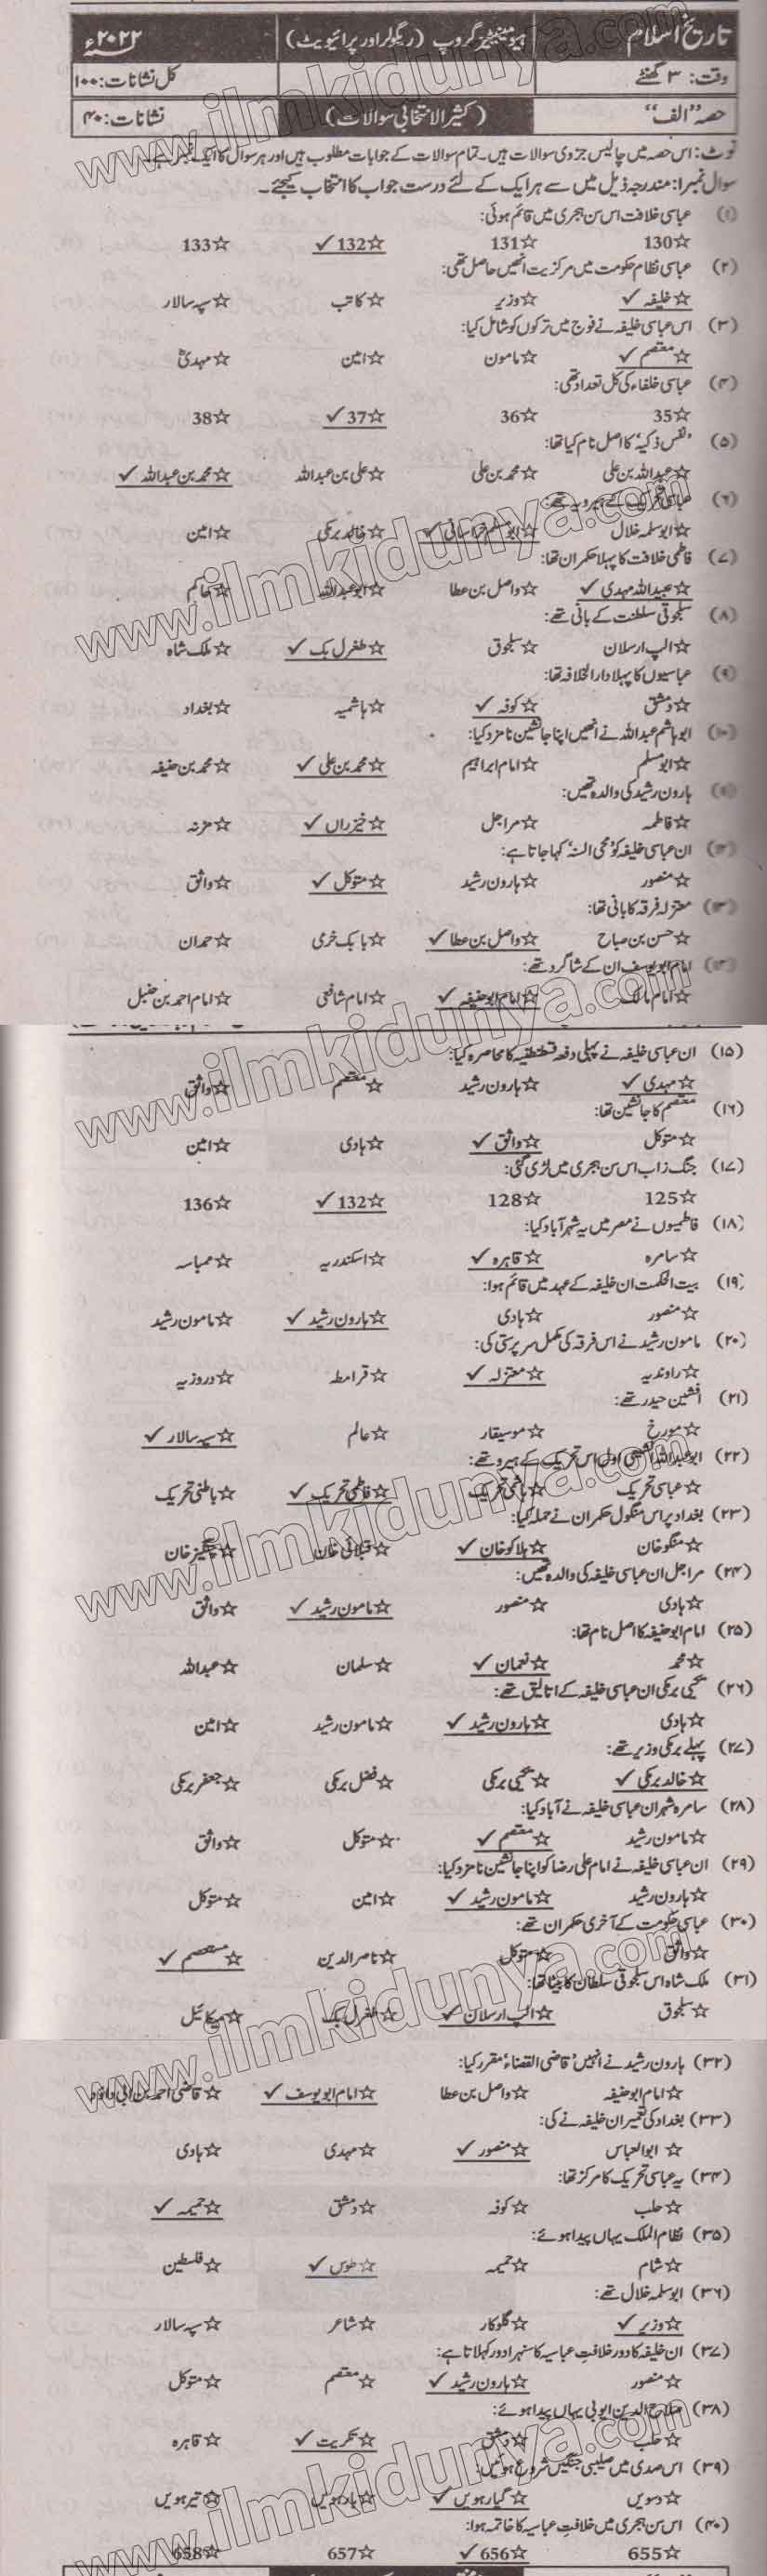 تاریخ اسلام ہیومینیٹیز گروپ (ریگولر اور پرائیویٹ) ۲۰۲۲ء
وقت: ۳ گھنٹے کل نشانات: ۱۰۰
حصہ "الف" (کثیر الانتخابی سوالات) نشانات: ۴۰
نوٹ: اس حصہ میں چالیس جزوی سوالات ہیں۔ تمام سوالات کے جوابات مطلوب ہیں اور ہر سوال کا ایک نمبر ہے۔
سوال نمبر۱: مندرجہ ذیل میں سے ہر ایک کے لئے درست جواب کا انتخاب کیجئے۔
(۱) عباسی خلافت اس سن ہجری میں قائم ہوئی:
☆130 ☆131 ☆132 ✓ ☆133
(۲) عباسی نظام حکومت میں مرکزیت انھیں حاصل تھی:
☆ خلیفہ ✓ ☆ وزیر ☆ کاتب ☆ سپہ سالار
(۳) اس عباسی خلیفہ نے فوج میں ترکوں کو شامل کیا:
☆ معتصم ✓ ☆ مامون ☆ امین ☆ مہدی
(۴) عباسی خلفاء کی کل تعداد تھی:
☆35 ☆36 ☆37 ✓ ☆38
(۵) 'نفس ذکیہ' کا اصل نام کیا تھا:
☆ عبداللہ بن علی ☆ محمد بن علی ☆ علی بن عبداللہ ☆ محمد بن عبداللہ ✓
(۶) عباسی تحریک کے ہیرو یہ تھے:
☆ ابو سلمہ خلال ☆ ابو مسلم خراسانی ✓ ☆ خالد برمکی ☆ امین
(۷) فاطمی خلافت کا پہلا حکمران تھا:
☆ عبید اللہ مہدی ✓ ☆ واصل بن عطا ☆ ابو عبداللہ ☆ حاکم
(۸) سلجوقی سلطنت کے بانی تھے:
☆ الپ ارسلان ☆ سلجوق ☆ طغرل بک ✓ ☆ ملک شاہ
(۹) عباسیوں کا پہلا دارالخلافہ تھا:
☆ دمشق ☆ کوفہ ✓ ☆ ہاشمیہ ☆ بغداد
(۱۰) ابو ہاشم عبداللہ نے انھیں اپنا جانشین نامزد کیا:
☆ ابو مسلم ☆ امام ابراہیم ☆ محمد بن علی ✓ ☆ محمد بن حنیفہ
(۱۱) ہارون رشید کی والدہ تھیں:
☆ فاطمہ ☆ مراجل ☆ خیزراں ✓ ☆ مزنہ
(۱۲) ان عباسی خلیفہ کو 'محی السنہ' کہا جاتا ہے:
☆ منصور ☆ ہارون رشید ☆ متوکل ✓ ☆ واثق
(۱۳) معتزلہ فرقہ کا بانی تھا:
☆ حسن بن صباح ☆ واصل بن عطا ✓ ☆ بابک خرمی ☆ حمدان
(۱۴) امام ابو یوسف ان کے شاگرد تھے:
☆ امام مالک ☆ امام ابو حنیفہ ✓ ☆ امام شافعی ☆ امام احمد بن حنبل
(۱۵) ان عباسی خلیفہ نے پہلی دفعہ قسطنطنیہ کا محاصرہ کیا:
☆ مہدی ✓ ☆ ہارون رشید ☆ معتصم ☆ واثق
(۱۶) معتصم کا جانشین تھا:
☆ متوکل ☆ واثق ✓ ☆ ہادی ☆ امین
(۱۷) جنگ زاب اس سن ہجری میں لڑی گئی:
☆125 ☆128 ☆132 ✓ ☆136
(۱۸) فاطمیوں نے مصر میں یہ شہر آباد کیا:
☆ سامرہ ☆ قاہرہ ✓ ☆ اسکندریہ ☆ عباسہ
(۱۹) بیت الحکمت ان خلیفہ کے عہد میں قائم ہوا:
☆ منصور ☆ ہادی ☆ ہارون رشید ✓ ☆ مامون رشید
(۲۰) مامون رشید نے اس فرقہ کی مکمل سرپرستی کی:
☆ راوندیہ ☆ معتزلہ ✓ ☆ قرامطہ ☆ دروزیہ
(۲۱) افشین حیدر تھے:
☆ مورخ ☆ موسیقار ☆ عالم ☆ سپہ سالار ✓
(۲۲) ابو عبداللہ الشیعی اول اس تحریک کے ہیرو تھے:
☆ عباسی تحریک ☆ ہاشمی تحریک ☆ فاطمی تحریک ✓ ☆ باطنی تحریک
(۲۳) بغداد پر اس منگول حکمران نے حملہ کیا:
☆ منگو خان ☆ ہلاکو خان ✓ ☆ قبلائی خان ☆ چنگیز خان
(۲۴) مراجل ان عباسی خلیفہ کی والدہ تھیں:
☆ ہادی ☆ منصور ☆ مامون رشید ✓ ☆ واثق
(۲۵) امام ابو حنیفہ کا اصل نام تھا:
☆ محمد ☆ نعمان ✓ ☆ سلمان ☆ عبداللہ
(۲۶) یحییٰ برمکی ان عباسی خلیفہ کے اتالیق تھے:
☆ ہادی ☆ ہارون رشید ✓ ☆ مامون رشید ☆ امین
(۲۷) پہلے برمکی وزیر تھے:
☆ خالد برمکی ✓ ☆ یحییٰ برمکی ☆ فضل برمکی ☆ جعفر برمکی
(۲۸) سامرہ شہر ان عباسی خلیفہ نے آباد کیا:
☆ مامون رشید ☆ معتصم ✓ ☆ متوکل ☆ واثق
(۲۹) ان عباسی خلیفہ نے امام علی رضا کو اپنا جانشین نامزد کیا:
☆ ہارون رشید ☆ مامون رشید ✓ ☆ امین ☆ متوکل
(۳۰) عباسی حکومت کے آخری حکمران تھے:
☆ واثق ☆ متوکل ☆ ناصر الدین ☆ مستعصم ✓
(۳۱) ملک شاہ اس سلجوقی سلطان کا بیٹا تھا:
☆ سلجوق ☆ الپ ارسلان ✓ ☆ طغرل بک ☆ میکائیل
(۳۲) ہارون رشید نے انہیں 'قاضی القضاء' مقرر کیا:
☆ امام ابو حنیفہ ☆ واصل بن عطا ☆ امام ابو یوسف ✓ ☆ قاضی احمد بن ابی داؤد
(۳۳) بغداد کی تعمیر ان خلیفہ نے کی:
☆ ابو العباس ☆ منصور ✓ ☆ مہدی ☆ ہادی
(۳۴) یہ عباسی تحریک کا مرکز تھا:
☆ حلب ☆ کوفہ ☆ دمشق ☆ حمیمہ ✓
(۳۵) نظام الملک یہاں پیدا ہوئے:
☆ شام ☆ حمیمہ ☆ طوس ✓ ☆ فلسطین
(۳۶) ابو سلمہ خلال تھے:
☆ وزیر ✓ ☆ گلوکار ☆ شاعر ☆ سپہ سالار
(۳۷) ان خلیفہ کا دور خلافت عباسیہ کا سنہرا دور کہلاتا ہے:
☆ منصور ☆ ہارون رشید ✓ ☆ معتصم ☆ متوکل
(۳۸) صلاح الدین ایوبی یہاں پیدا ہوئے:
☆ حلب ☆ دمشق ☆ تکریت ✓ ☆ قاہرہ
(۳۹) اس صدی میں صلیبی جنگیں شروع ہوئیں:
☆ دسویں ☆ گیارہویں ✓ ☆ بارہویں ☆ تیرہویں
(۴۰) اس سن ہجری میں خلافت عباسیہ کا خاتمہ ہوا:
☆655 ☆656 ✓ ☆657 ☆658
www.ilmkidunya.com
www.ilmkidunya.com
www.ilmkidunya.com
www.ilmkidunya.com
www.ilmkidunya.com
www.ilmkidunya.com